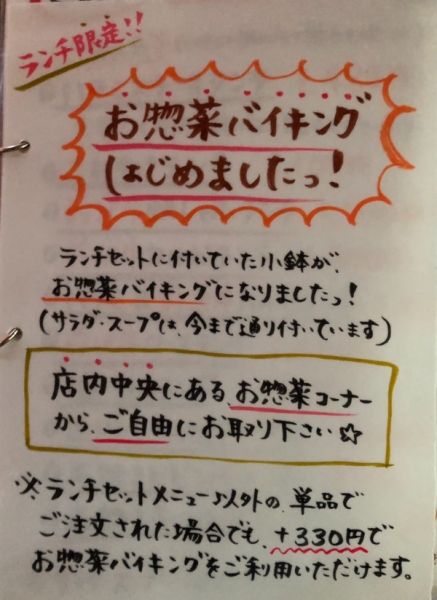 ランチ限定!!
お惣菜バイキング
はじめましたっ!
ランチセットに付いていた小鉢が、
お惣菜バイキングになりましたっ!
(サラダ・スープは、今まで通り付いています)
店内中央にある、お惣菜コーナー
から、ご自由にお取り下さい☆
※ランチセットメニュー以外の、単品で
ご注文された場合でも、+330円で
お惣菜バイキングをご利用いただけます。